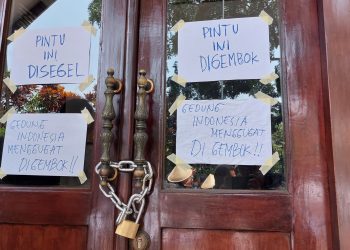 PINTU
INI
DISEGEL
GEDUNG
INDONESIA
MENGGUGAT
DIGEMBOK!!
PINTU
INI
DIGEMBOK
GEDUNG
INDONESIA
MENGGUGAT
DI GEMBOK!!